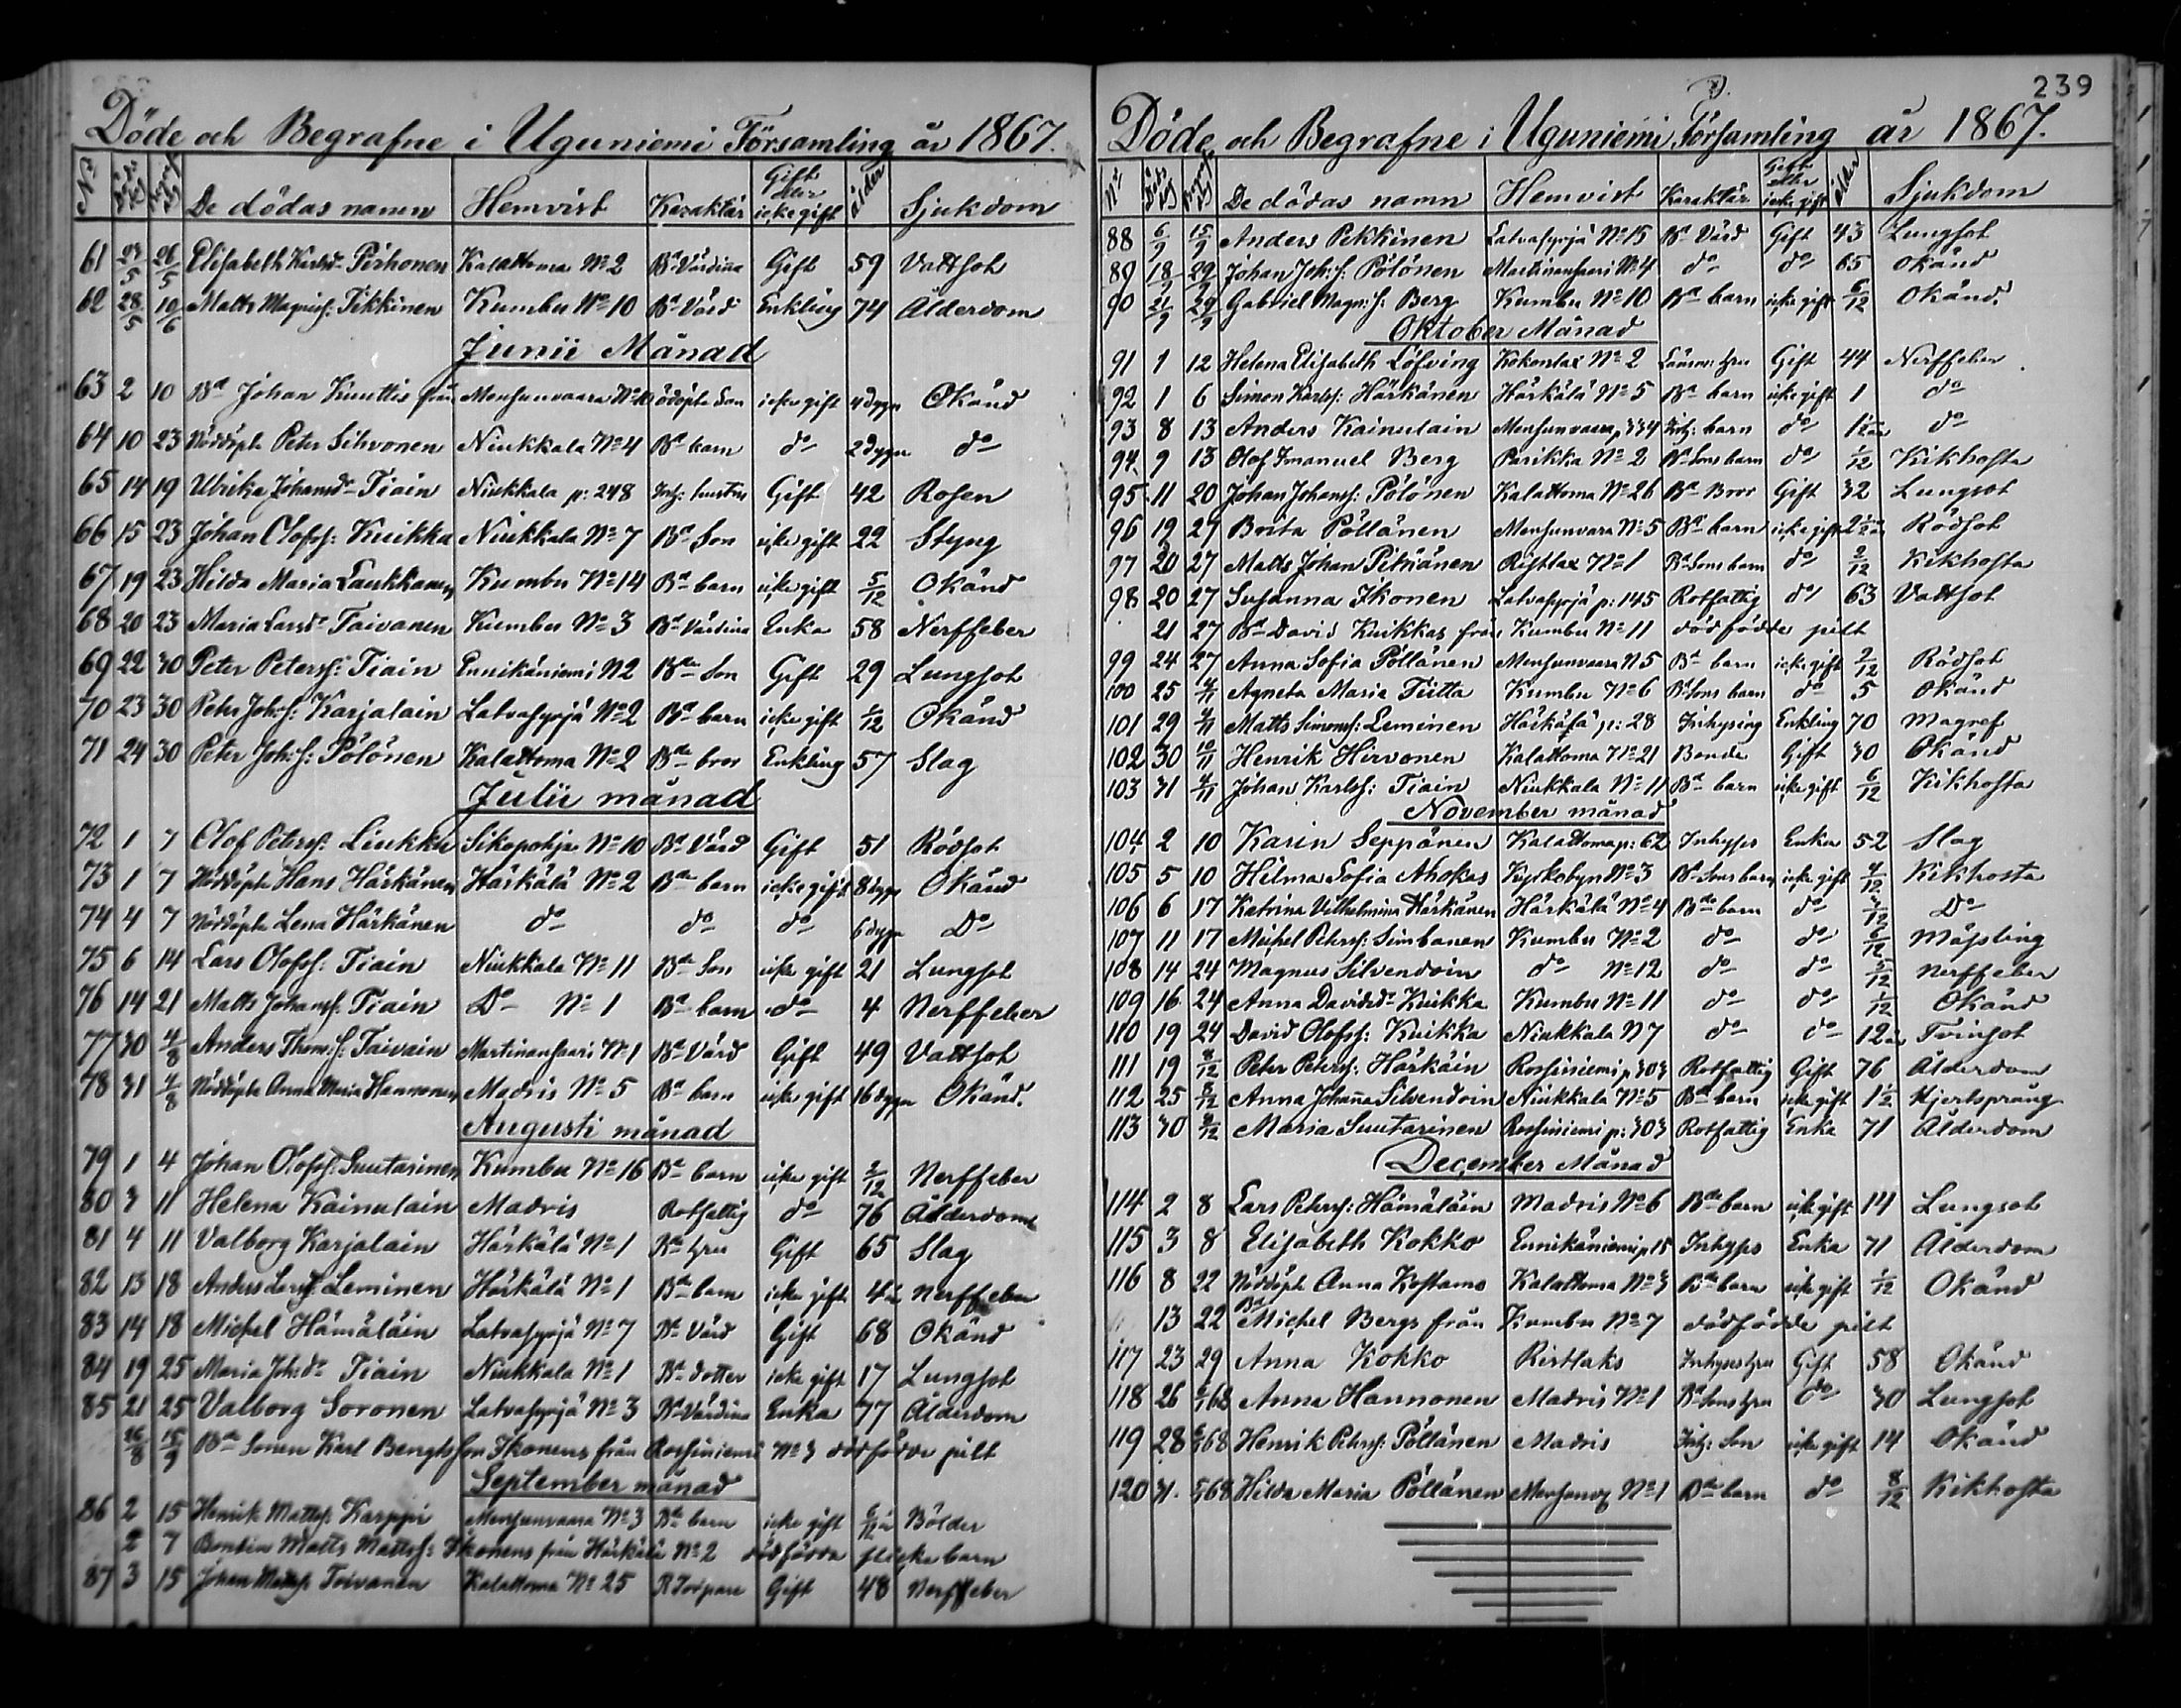 Döde och Begrafne i Uguniemi Församling år 1867.
No De dödas namn Hemvist Karaktär Gift eller icke gift ålder Sjukdom
61 24/5 26/5 Elisabeth Karlsdr Pirhonen Kalattoma No 2 Bd Värdina Gift 59 Vattsot
62 28/5 10/6 Matts Magnuss: Pikkinen Kumbu No 10 Bd Värd Enkling 74 Ålderdom
Junii Månad
63 2 10 Bd Johan Kinuttis från Mensunvaara No odöpte Son icke gift 4 dygn Okänd
64 10 23 Nöddöpte Peter Sihvonen Niukkala No 4 Bd barn do 2 dygn do
65 14 19 Ulrika Johansdr Tiain Niukkala p: 248 Inh: hustru Gift 42 Rosen
66 15 23 Johan Olofss: Kuikka Niukkala No 7 Bd Son icke gift 22 Styng
67 19 23 Hilda Maria Laukkanen Kumbu No 14 Bd barn icke gift 5/12 Okänd
68 20 23 Maria Larsdr Taivanen Kumbu No 3 Bd Värdina Enka 58 Nerffeber
69 22 30 Peter Peterss: Tiain Ennikäniemi N 2 Bde Son Gift 29 Lungsot
70 23 30 Petr Joh:s: Karjalain Latvasyrjä No 2 Bd barn icke gift 1/12 Okänd
71 24 30 Peter Joh:s: Pölönen Kalattoma No 2 Bde bror Enkling 57 Slag
Julii månad
72 1 7 Olof Peterss: Liukku Sikopohja No 10 Bd Värd Gift 51 Rödsot
73 1 7 Nöddöpte Hans Härkänen Härkälä No 2 Bde barn icke gift 8 dygn Okänd
74 4 7 Nöddöpte Lena Härkönen do do do 6 dygn Do
75 6 14 Lars Olofss: Tiain Niukkala No 11 Bde Son icke gift 21 Lungsot
76 14 21 Matts Johanss: Tiain Do No 1 Bd barn do 4 Nerffeber
77 30 4/8 Anders Thom:s: Taivain Martinansaari No 1 Bd Värd Gift 49 Vattsot
78 31 4/8 Nöddöpte Anna Maria Hannonen Madris No 5 Bd barn icke gift 16 dygn Okänd.
Augusti månad
79 1 4 Johan Olofss: Suutarinen Kumbu No 16 Bd barn icke gift 2/12 Nerffeber
80 3 11 Helena Kainulain Madris Rotfattig do 76 Ålderdom
81 4 11 Valborg Karjalain Härkälä No 1 Bde hru Gift 65 Slag
82 13 18 Anders Leminen Härkälä No 1 Bde barn icke gift 4 Nerffeber
83 14 18 Michel Hämäläin Latvasyrjä No 7 Bd Värd Gift 68 Okänd
84 19 25 Maria Joh:dr Tiain Niukkala No 1 Bd dotter icke gift 17 Lungsot
85 21 25 Valborg Soronen Latvasyrjä No 3 Bd Värdina Enka 77 Ålderdom
26/8 15/9 Bde Sonen Karl Bengtsson Ikonens från Rossiniemi No 3 dödfödde pilt
September månad
86 2 15 Henrik Matts: Karppi Mensunvaara No 3 Bde barn icke gift Bölder
2 7 Bonden Matts Mattss: Ikonens från Härkälä No 2 dödfödda flicke barn
87 3 15 Johan Matss: Toivanen Kalattoma No 25 R Torpare Gift 48 Nerffeber
239
Döde och Begrafne i Uguniemi Församling år 1867.
No De dödas namn Hemvist Karaktär Gift eller icke gift ålder Sjukdom
88 6/9 15/9 Anders Pekkinen Latvasyrjä No 15 Bd Värd Gift 43 Lungsot
89 18/9 29/9 Johan Joh:s: Pölönen Martinansaari No 4 do do 65 okänd
90 21/9 29/9 Gabriel Magn:s: Berg Kumbu No 10 Bd barn icke gift 6/12 Okänd.
Oktober Månad
91 1 12 Helena Elisabeth Löfving Kokonlax No 2 Länsm: hru Gift 44 Nerffeber
92 1 6 Simon Karlss: Härkänen Härkälä No 5 Bd barn icke gift 1 do
93 8 13 Anders Kainulain Mensunvaara p 334 Inh: barn do 1 1/2 år do
94 9 13 Olof Imanuel Berg Parikka No 2 Bd Sons barn do 1/12 Kikhosta
95 11 20 Johan Johanss: Pölönen Kalattoma No 26 Bd Bror Gift 32 Lungsot
96 19 27 Brita Pöllänen Mensunvara No 5 Bd barn icke gift 2 1/2 år Rödsot
97 20 27 Matts Johan Pitkänen Ristlax No 1 Bd Sons barn do 2/12 Kikhosta
98 20 27 Susanna Ikonen Latvasyrjä p: 145 Rotfattig do 63 Vattsot
21 27 Bd David Kuikkas från Kumbu No 11 dödfödde pilt
99 24 27 Anna Sofia Pöllänen Mensunvaara N 5 Bd barn icke gift 2/12 Rödsot
100 25 4/11 Agneta Maria Tiitta Kumbu No 6 Bd Sons barn do 5 Okänd
101 29 4/11 Matts Simonss: Leminen Härkälä p: 28 Inhysing Enkling 70 Magref
102 30 10/11 Henrik Hirvonen Kalattoma No 21 Bonde Gift 30 Okänd
103 31 4/11 Johan Karlss: Tiain Niukkala No 11 Bd barn icke gift 6/12 Kikhosta
November månad
104 2 10 Karin Seppänen Kalattoma p: 62 Inhyses Enka 52 Slag
105 5 10 Hilma Sofia Ahokas Kyrkobyn No 3 Bd Sons barn icke gift 4/12 Kikhosta
106 6 17 Katrina Vilhelmina Härkänen Härkälä No 4 Bde barn do 3/12 Do
107 11 17 Michel Peterss: Simbanen Kumbu No 2 do do 6/12 Mässling
108 14 24 Magnus Silvendoin do No 12 do do 5/12 nerffeber
109 16 24 Anna Davidsdr Kuikka Kumbu No 11 do do 1/12 Okänd
110 19 24 David Olofss: Kuikka Niukkala N 7 do do 12 år Tvinsot
111 19 8/12 Peter Peterss: Härkäin Rossiniemi p 303 Rotfattig Gift 76 Ålderdom
112 25 8/12 Anna Johanna Silvendoin Niukkala No 5 Bd barn icke gift 1 1/2 Hjertsprång
113 30 8/12 Maria Suutarinen Rossiniemi p: 303 Rotfattig Enka 71 Ålderdom
December Månad
114 2 8 Lars Peterss: Hämäläin Madris No 6 Bde barn icke gift 14 Lungsot
115 3 8 Elisabeth Kokko Ennikäniemi p 15 Inhyses Enka 71 Ålderdom
116 8 22 Nöddöpte Anna Kostamo Kalattoma No 3 Bde barn icke gift 1/12 Okänd
13 22 Bd Michel Bergs från Kumbu No 7 dödfödde pilt
117 23 29 Anna Kokko Ristlaks Inhyses hru Gift 58 Okänd
118 26 68 Anna Hannonen Madris No 1 Bd Sons hru do 30 Lungsot
119 28 68 Henrik Peterss: Pöllänen Madris Inh: Son icke gift 14 Okänd
120 31. 68 Hilda Maria Pöllänen Mensunv No 1 Bde barn do 8/12 Kikhosta